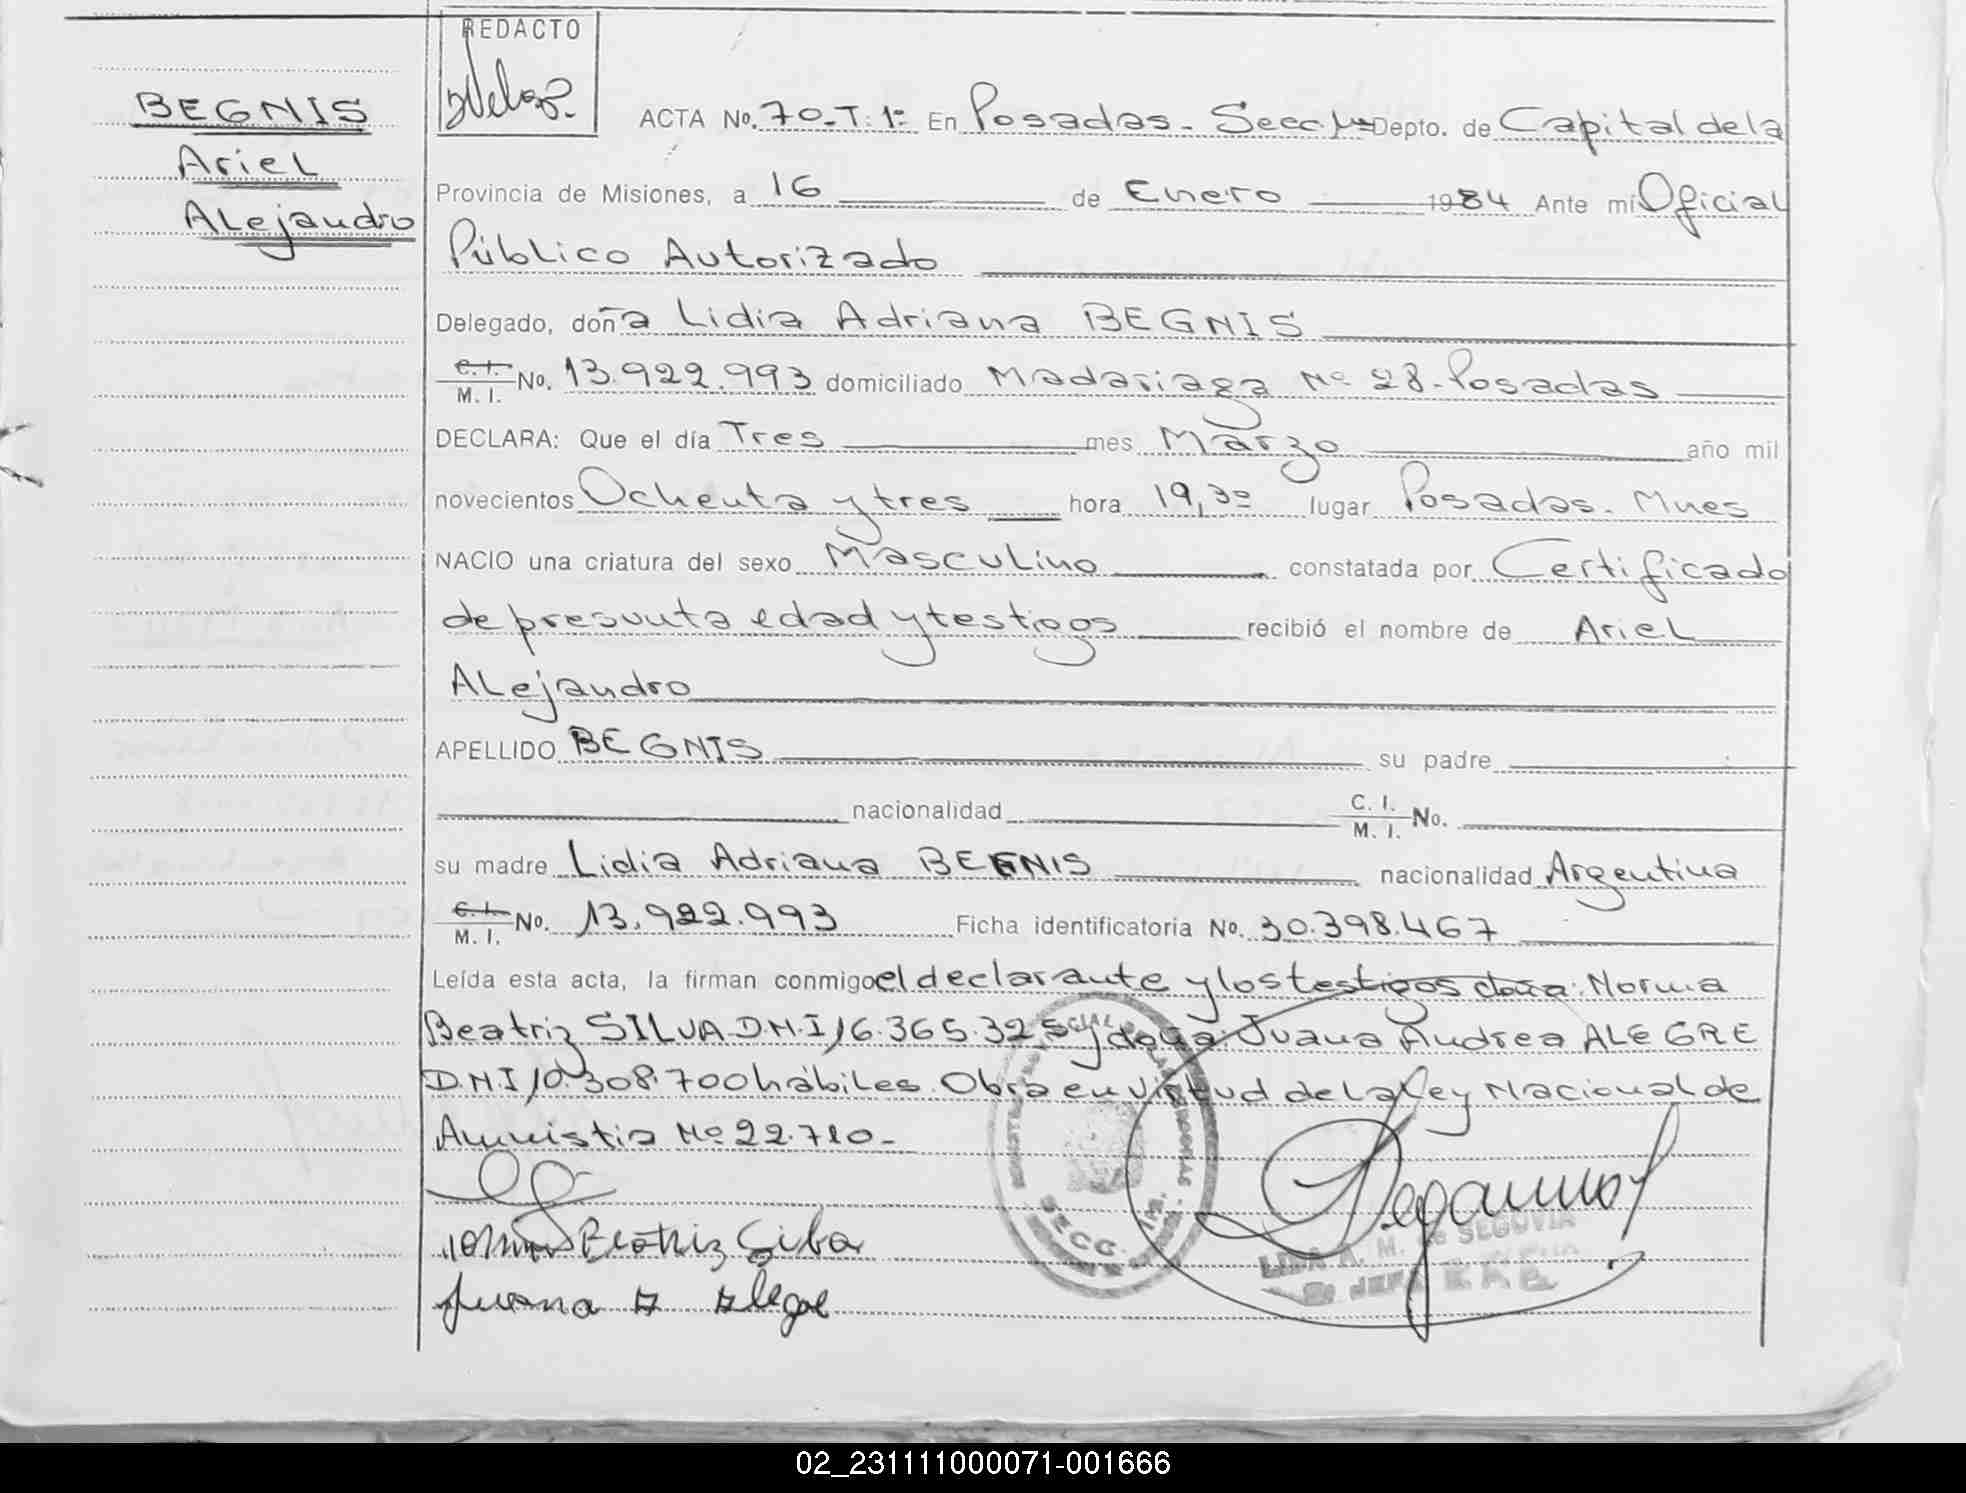 REDACTO
BEGNIS
Ariel
Alejandro
ACTA No. 70-T.1º En Posadas - Secc 1ª Depto. de Capital de la
Provincia de Misiones, a 16 de Enero 1984 Ante mi Oficial
Público Autorizado
Delegado, doña Lidia Adriana BEGNIS
C.I. M.I. No. 13.922.993 domiciliado Madariaga Nº 28-Posadas
DECLARA: Que el día Tres mes Marzo año mil
novecientos Ochenta y tres hora 19,30 lugar Posadas. Mnes
NACIO una criatura del sexo Masculino constatada por Certificado
de presunta edad y testigos recibió el nombre de Ariel
Alejandro
APELLIDO BEGNIS su padre
nacionalidad C. I. M. I. No.
su madre Lidia Adriana BEGNIS nacionalidad Argentina
C.I. M.I. No. 13.922.993 Ficha identificatoria No. 30.398.467
Leída esta acta, la firman conmigo el declarante y los testigos doña: Norma
Beatriz SILVA D.N.I 16.365.325 y doña Juana Andrea ALEGRE
D.N.I 10.308.700 hábiles. Obra en virtud de la Ley Nacional de
Amnistia Nº 22.710-
Beatriz Silva
Juana A Alegre
SECC.
M. de SEGOVIA
02_231111000071-001666